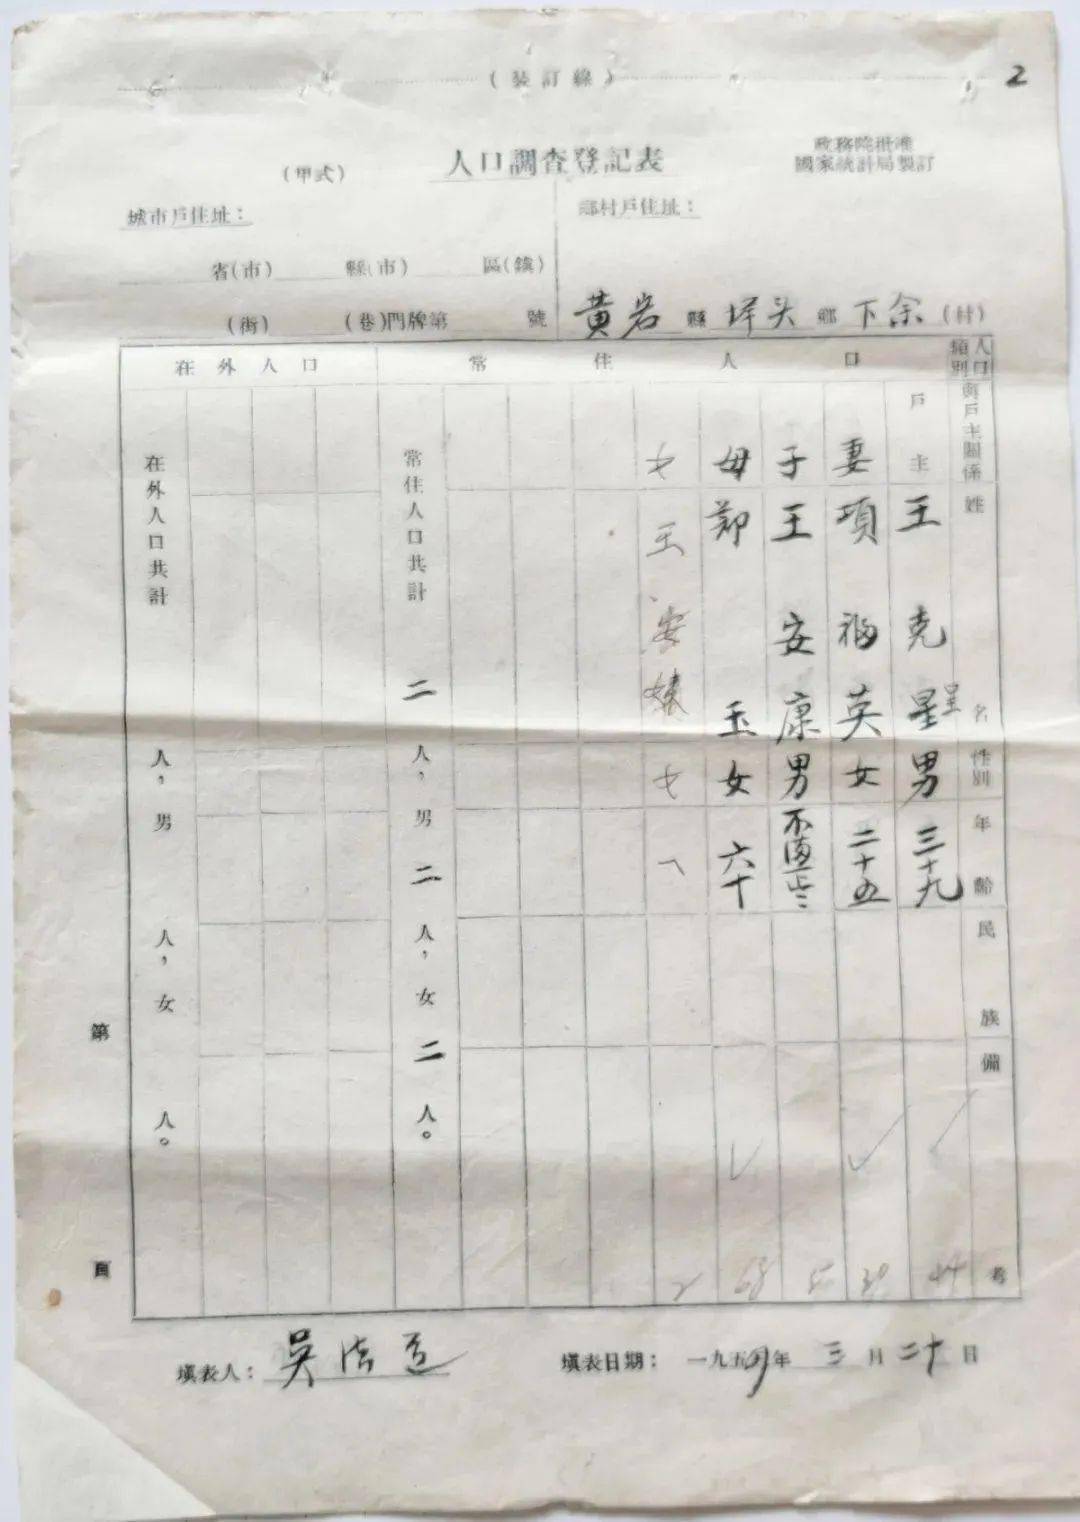 (裝訂線)
2
(甲式)
人口調查登記表
政務院批准
國家統計局製訂
城市戶住址：
省(市) 縣(市) 區(鎮)
(街) (巷)門牌第 號
鄉村戶住址：
黃岩縣 垟头鄉 下余(村)
人口類別
常住人口
在外人口
與戶主關係
姓名
性別
年齡
民族
備考
戶主 王克星 呈 男 三十九 44
妻 項福英 女 二十五 30
子 王安康 男
母 鄭玉 女 六十 68
女 王安 女 2
常住人口共計 二 人，男 二 人，女 二 人。
在外人口共計 人，男 人，女 人。
第 頁
填表人：吳
填表日期：一九五 年 三 月 二十 日